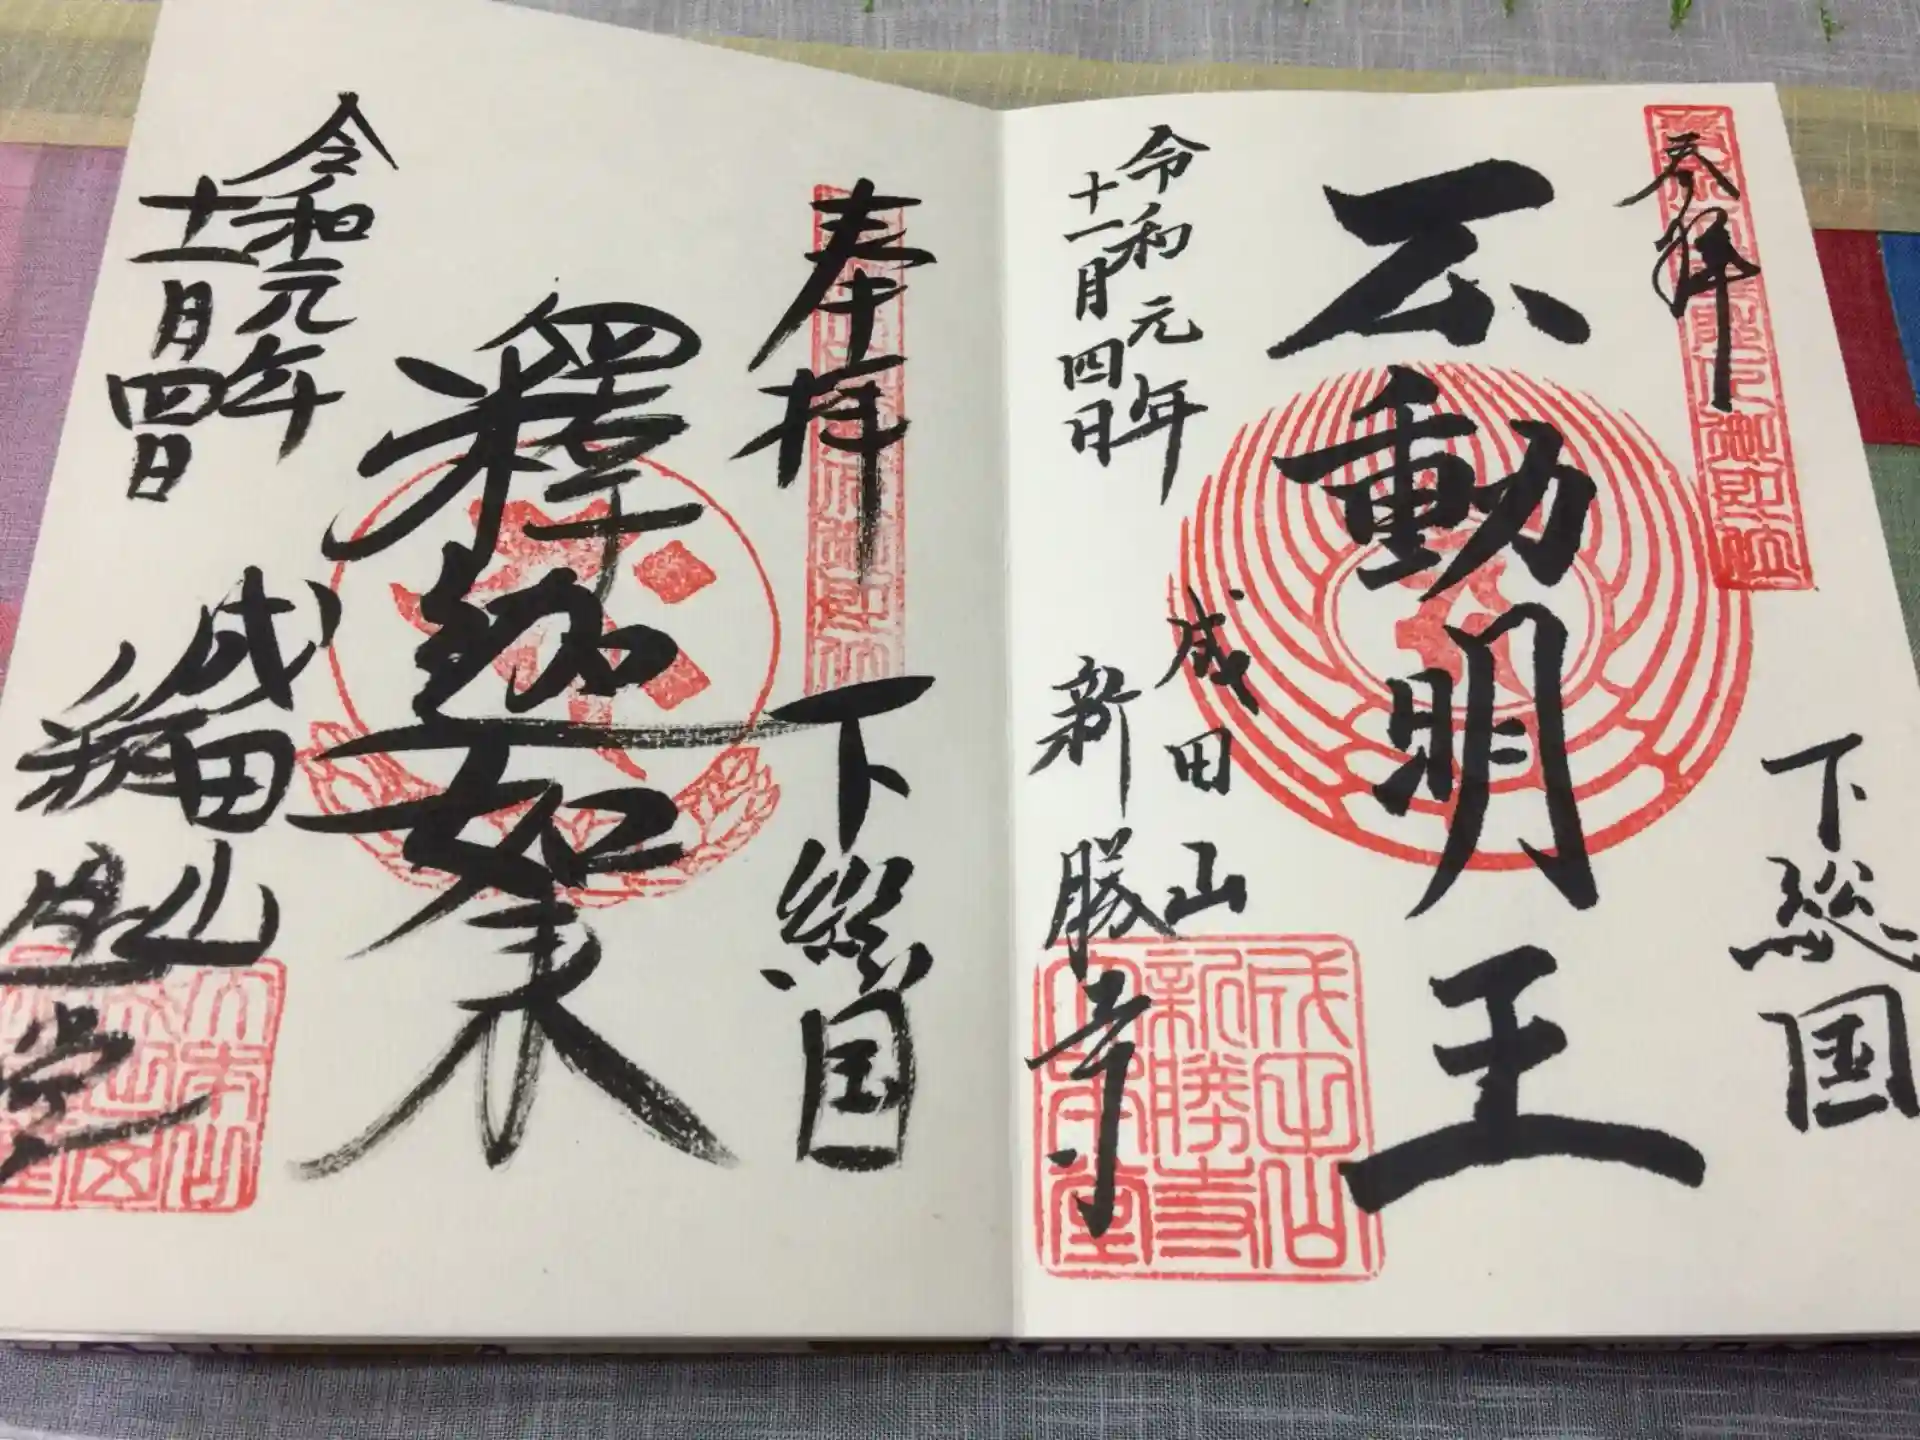 奉拝
下総国
不動明王
令和元年
十一月四日
成田山
新勝寺
成田山
新勝寺
奉拝
下総国
釋迦如来
令和元年
十一月四日
成田山
釈迦堂